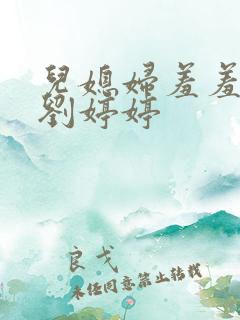 兒媳婦羞羞
劉婷婷
良戈
未经同意禁止转载